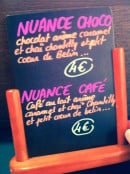 NUANCE CHOCO
chocolat arôme caramel
et chaï chantilly et petit
cœur de Bélin...
4€
NUANCE CAFÉ
Café au lait arôme
caramel et chaï Chantilly
et petit cœur de bélin...
4€